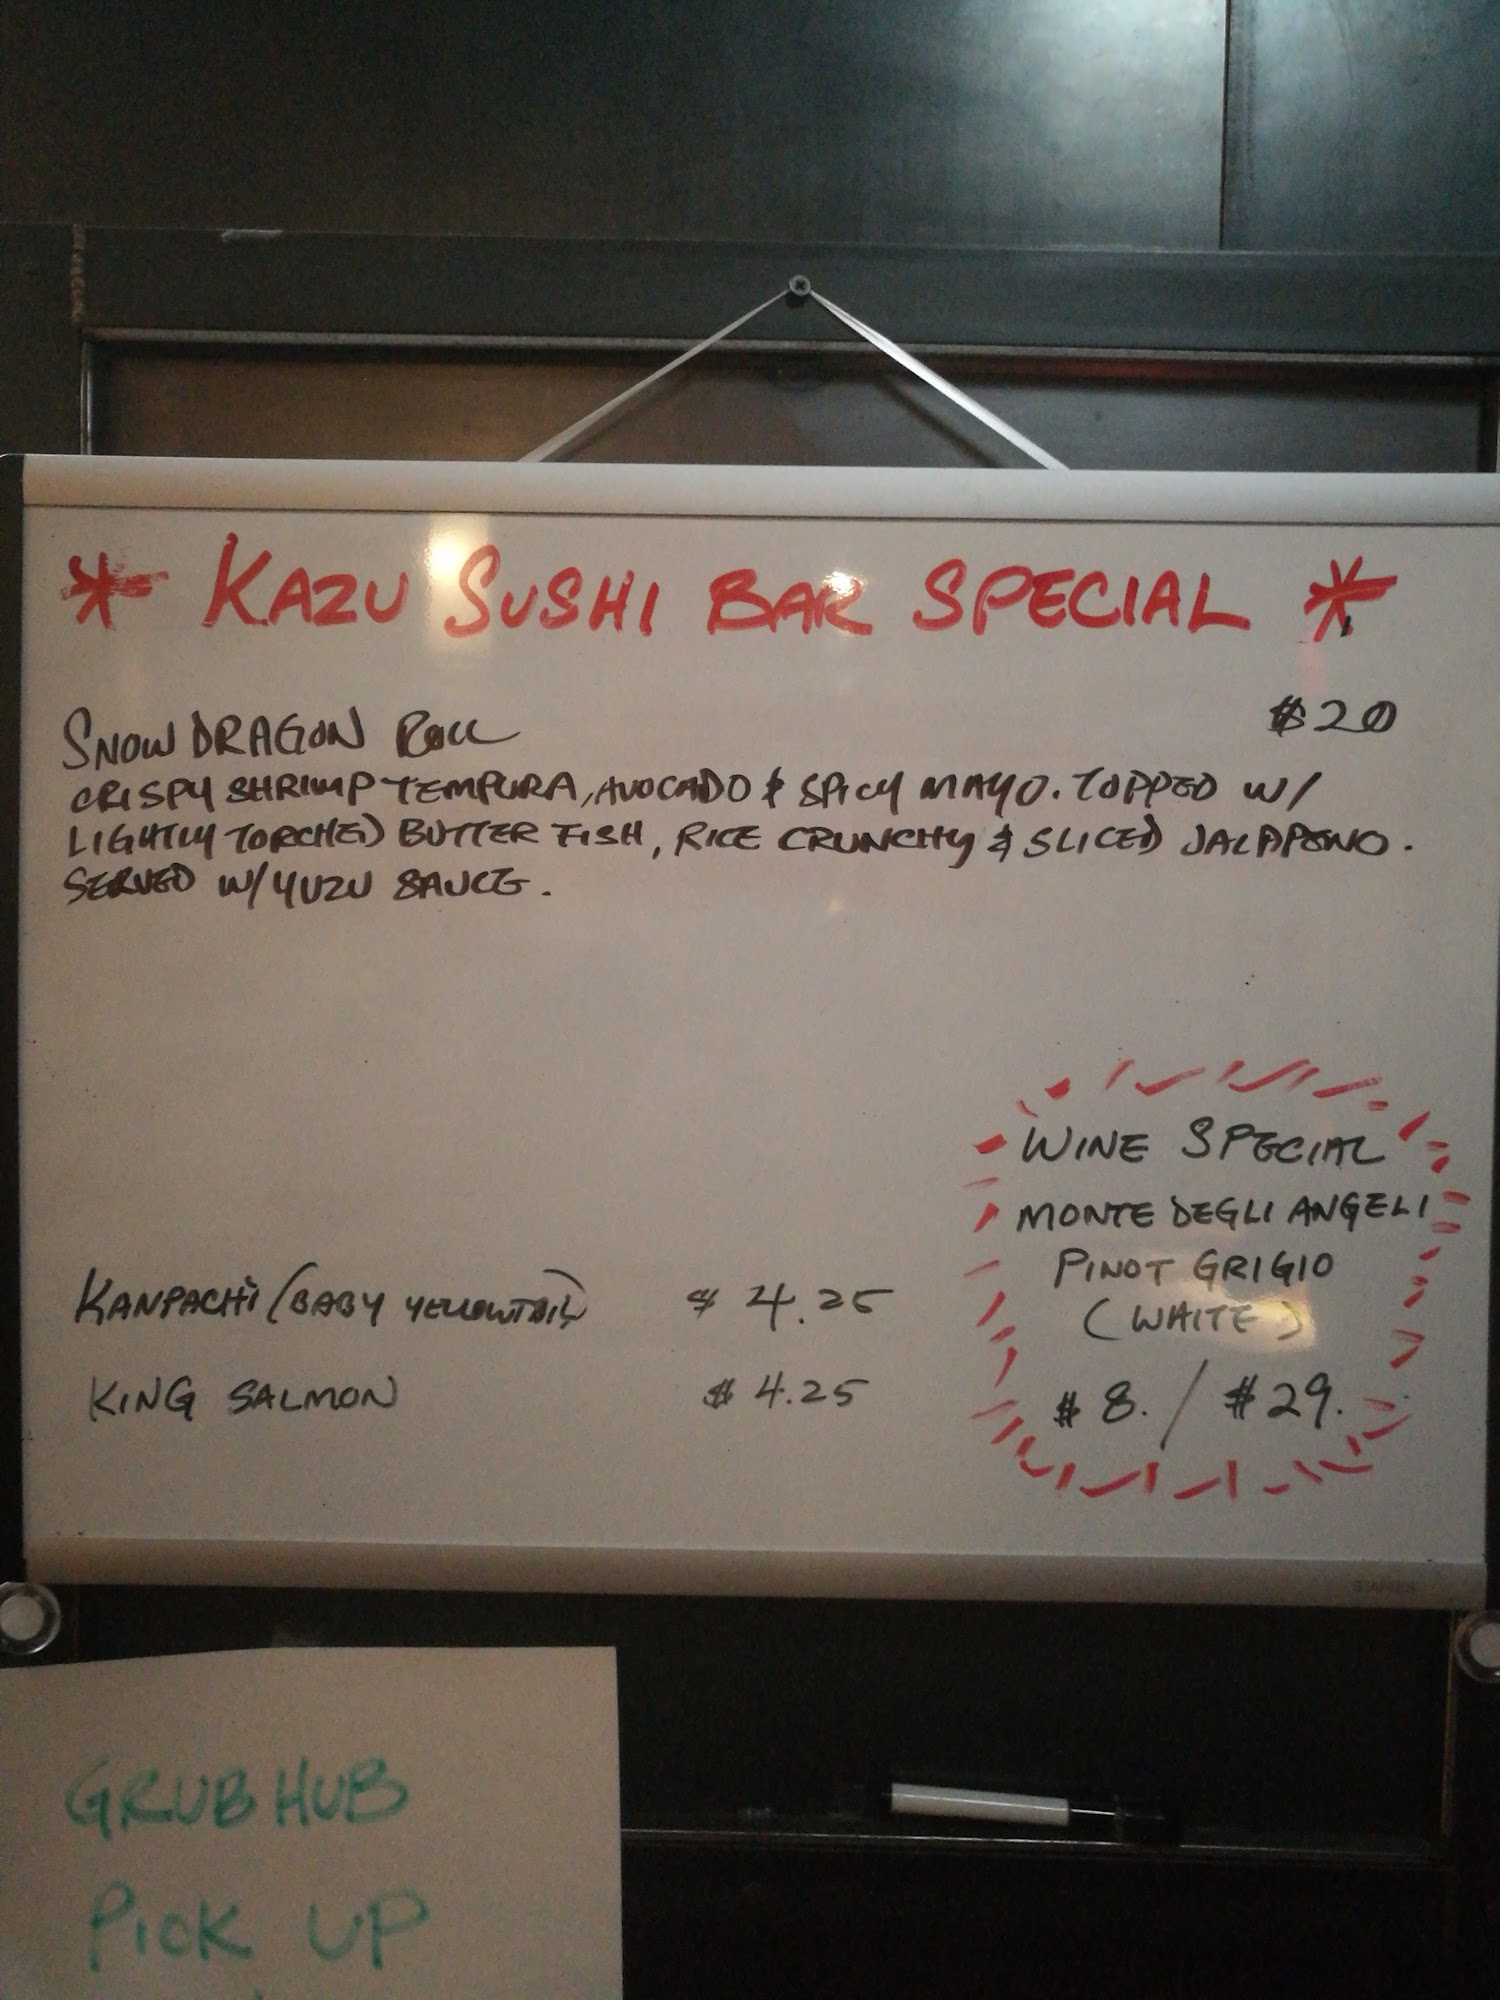 * KAZU SUSHI BAR SPECIAL *
SNOW DRAGON ROLL $20
CRISPY SHRIMP TEMPURA, AVOCADO & SPICY MAYO. TOPPED W/
LIGHTLY TORCHED BUTTER FISH, RICE CRUNCHY & SLICED JALAPENO.
SERVED W/ YUZU SAUCE.
WINE SPECIAL
MONTE DEGLI ANGELI
PINOT GRIGIO
(WHITE)
$8. / $29.
KANPACHi (BABY YELLOWTAIL) $4.25
KING SALMON $4.25
STAPLES
GRUBHUB
PicK UP